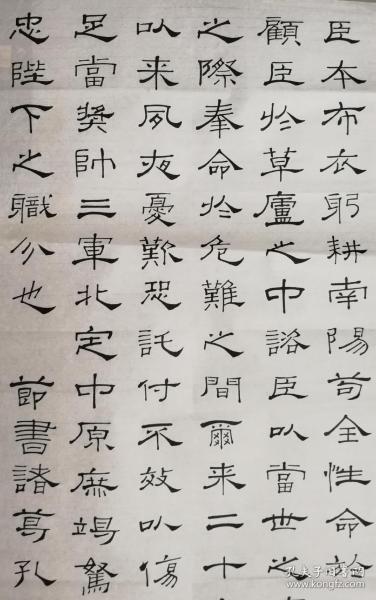 臣本布衣躬耕南陽苟全性命於
顧臣於草廬之中諮臣以當世之
之際奉命於危難之間爾来二十
以来夙夜憂歎恐託付不效以傷
足當獎帥三軍北定中原庶竭駑
忠陛下之職分也 節書諸葛孔
孔夫子旧书网